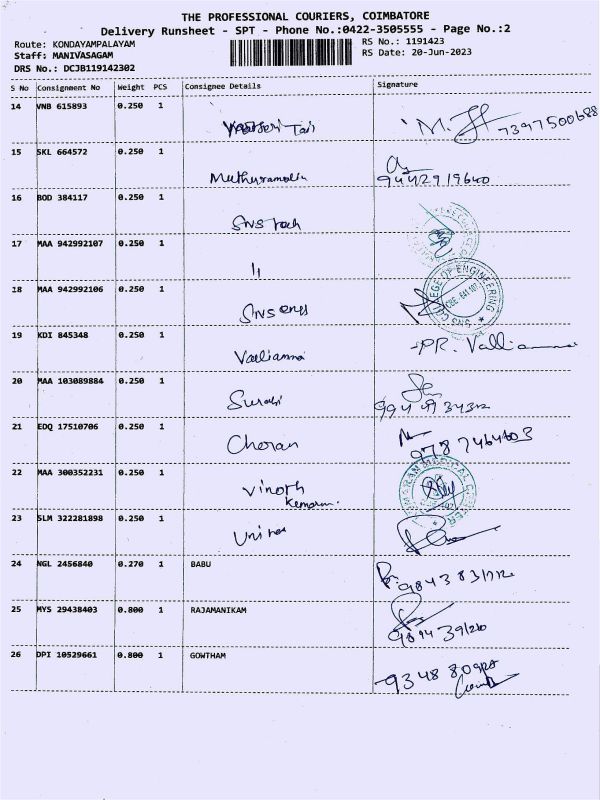 THE PROFESSIONAL COURIERS, COIMBATORE
Delivery Runsheet - SPT - Phone No.:0422-3505555 - Page No.:2
Route: KONDAYAMPALAYAM
Staff: MANIVASAGAM
DRS No.: DCJB119142302
RS No.: 1191423
RS Date: 20-Jun-2023
S No Consignment No Weight PCS Consignee Details Signature
14 VNB 615893 0.250 1
7397500688
15 SKL 664572 0.250 1
9442919640
16 BOD 384117 0.250 1 SNS Tech
17 MAA 942992107 0.250 1 11
18 MAA 942992106 0.250 1 SNS eng
SNS COLLEGE OF ENGINEERING
CBE 641 107
19 KDI 845348 0.250 1 Valliamma PR. Valliamma
20 MAA 103089884 0.250 1 Surabi
21 EDQ 17510706 0.250 1 Cheran 9787464603
22 MAA 300352231 0.250 1 Vinoth
MEDICAL CENTER
23 SLM 322281898 0.250 1
24 NGL 2456840 0.270 1 BABU
25 MYS 29438403 0.800 1 RAJAMANIKAM
26 DPI 10529661 0.800 1 GOWTHAM